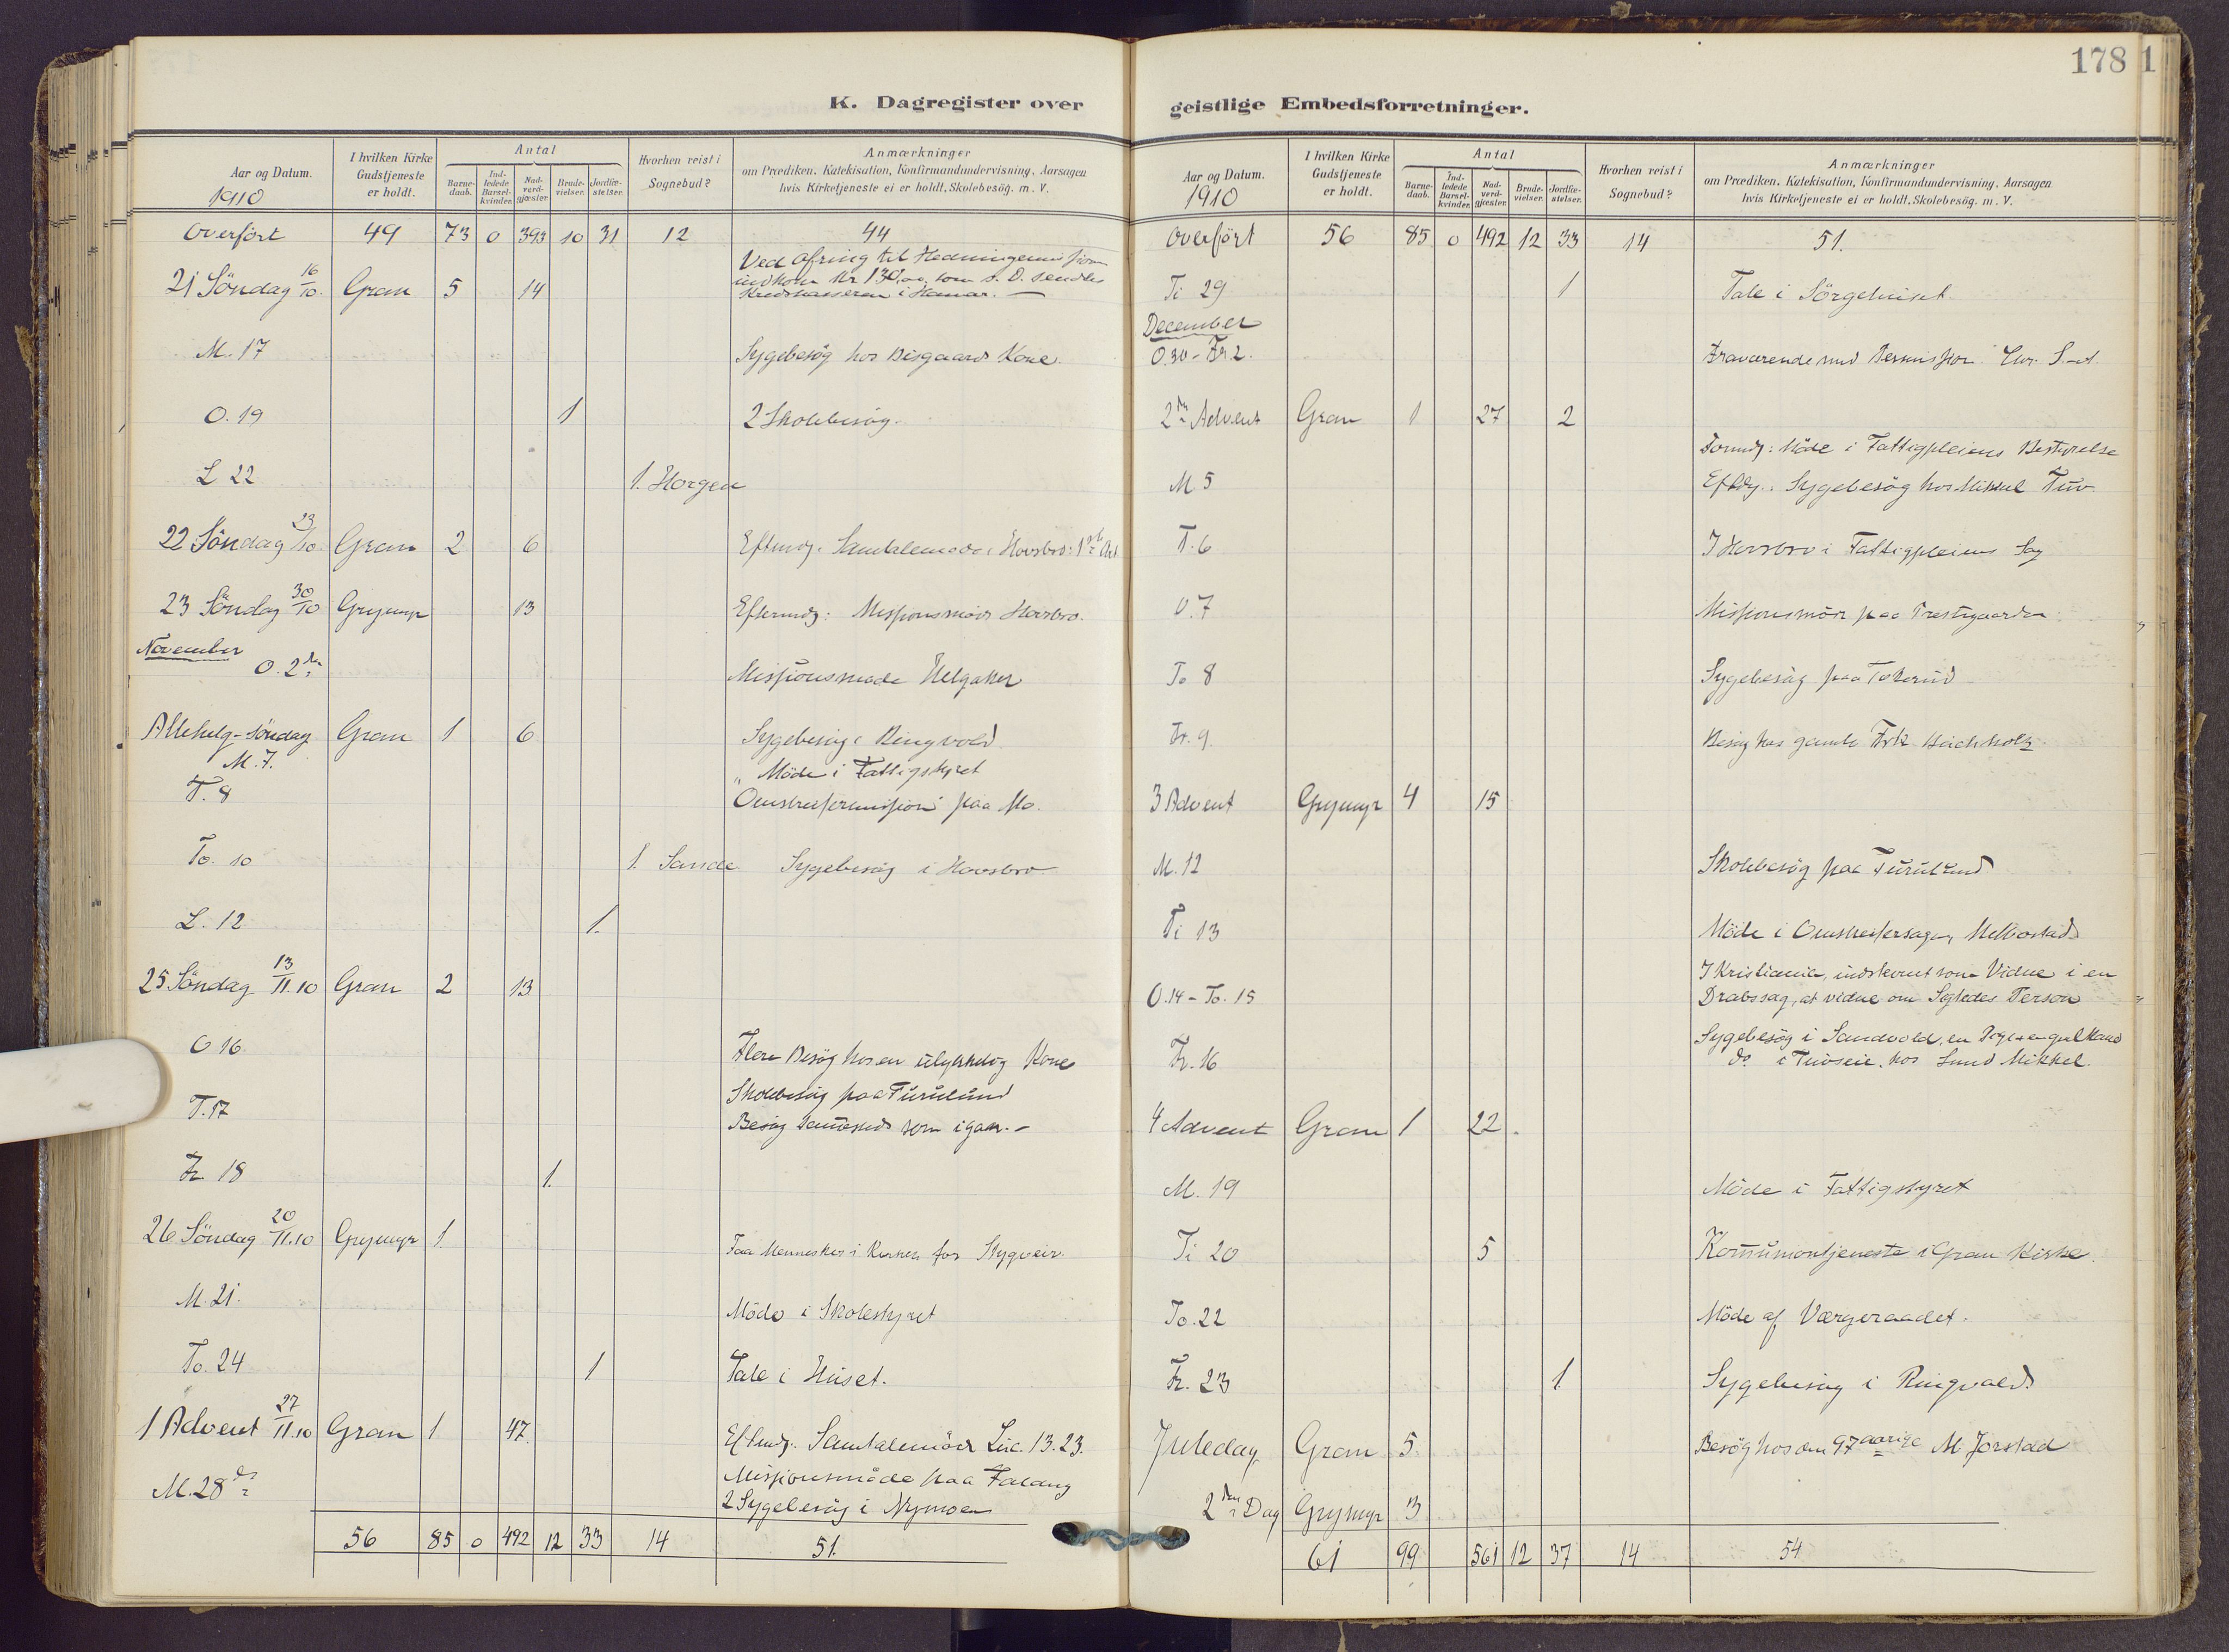 178 1
K. Dagregister over
Aar og Datum.
1910
I hvilken Kirke Gudstjeneste er holdt.
Antal
Barnedaab.
Indledede Barselkvinder.
Nadverdgjæster.
Brudevielser.
Jordfæstelser.
Hvorhen reist i Sognebud?
Anmærkninger
om Prædiken, Katekisation, Konfirmandundervisning, Aarsagen
hvis Kirketjeneste ei er holdt, Skolebesög. m. V.
Overfört 49 73 0 393 10 31 12 44
Ved Ofring til Hedningemission
21 Söndag 16/10. Gran 5 14 indkom Kr 130,00, som s. D. sendtes
Kredskasseren i Hamar. —
M. 17 Sygebesög hos Bisgaards Kone.
O. 19 1 2 Skolebesög.
L 22 1. Horgen
22 Söndag 23/10. Gran 2 6 Eftmdg. Samtalemøde i Hovsbro:
23 Söndag 30/10 Grymyr 13 Eftermdg: Missionsmöde Hovsbro.
November
O. 2den Missionsmøde Helgaker
Allehelg-Söndag Gran 1 6 Sygebesög i Ringvold
M. 7. " Möde i Fattigstyret
T. 8 Omstreifermission paa Mo.
To. 10 1. Sande Sygebesög i Hovsbro
L. 12 1.
25 Söndag 13/11.10 Gran 2 13
O 16 Flere Besög hos en ulykkelig Kone
Skolebesög paa Furulund
T. 17 Besög sammesteds som igaar. -
Fr 18 1.
26 Söndag 20/11.10 Grymyr 1. Faa Mennesker i Kirken for Stygveir.
M. 21. Möde i Skolestyret
To. 24 1 Tale i Huset.
1 Advent 27/11.10 Gran 1 47. Eftmdg. Samtalemöde Luc. 13.23.
M. 28de Missionsmöde paa Falang
2 Sygebesög i Nymoen
56 85 0 492 12 33 14 51.
geistlige Embedsforretninger.
Aar og Datum.
1910
I hvilken Kirke Gudstjeneste er holdt.
Antal
Barnedaab.
Indledede Barselkvinder.
Nadverdgjæster.
Brudevielser.
Jordfæstelser.
Hvorhen reist i Sognebud?
Anmærkninger
om Prædiken, Katekisation, Konfirmandundervisning, Aarsagen
hvis Kirketjeneste ei er holdt, Skolebesög. m. V.
Overfört 56 85 0 492 12 33 14 51.
Ti 29 1 Tale i Sörgehuset
December
O. 30 - Fr 2. Fraværende med Permission.
2den Advent Gran 1 27 2
Formdg: Möde i Fattigpleiens Bestyrelse
M 5 Eftdg.. Sygebesög hos Mikkel Tuv
T. 6 I Hovsbro i Fattigpleiens Sag
O. 7 Missionsmöde paa Prestegaarden
To 8 Sygebesög paa Tokerud
Fr. 9 Besög hos gamle Frk
3 Advent Grymyr 4 15
M. 12 Skolebesög paa Furulund
Ti 13 Möde i Omstreifersagen, Melbostad
I Kristiania, indstevnt som Vidne i en
O. 14 - To. 15 Drabssag, at vidne om Person
Sygebesög i Sandvold, en
Fr. 16 do. i Tuvseie, hos Lund Mikkel.
4 Advent Gran 1 22.
M. 19 Möde i Fattigstyret
Ti 20 5 Kommuniontjeneste i Gran Kirke.
To. 22 Möde af Værgeraadet.
Fr. 23 1 Sygebesög i Ringvold
Juledag Gran 5. Besög hos den 97 aarige M Jorstad
2den Dag Grymyr 3
61 99 561 12 37 14 54